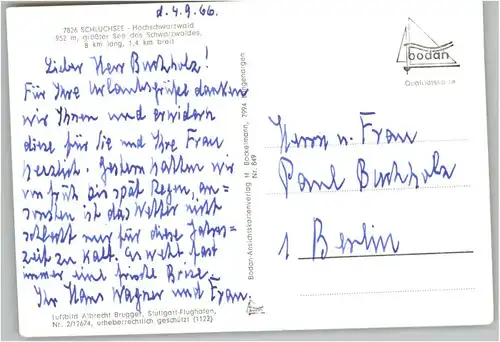 d. 4.9.66.
7826 SCHLUCHSEE - Hochschwarzwald
952 m, größter See des Schwarzwaldes,
8 km lang, 1,4 km breit
Lieber Herr Buchholz!
Für Ihre Urlaubsgrüße danken
wir Ihnen und erwidern
diese für Sie und Ihre Frau
herzlich. Gestern hatten wir
von früh bis spät Regen, an-
sonsten ist das Wetter nicht
schlecht nur für diese Jahres-
zeit zu kalt. Es weht fast
immer eine frische Brise.
Ihr Hans Wagner und Frau.
Luftbild Albrecht Brugger, Stuttgart-Flughafen,
Nr. 2/12674, urheberrechtlich geschützt (1122)
Bodan-Ansichtskartenverlag H. Bockelmann, 7994 Langenargen
Nr. 849
bodan
Qualitätskarte
Herrn u. Frau
Paul Buchholz
1 Berlin